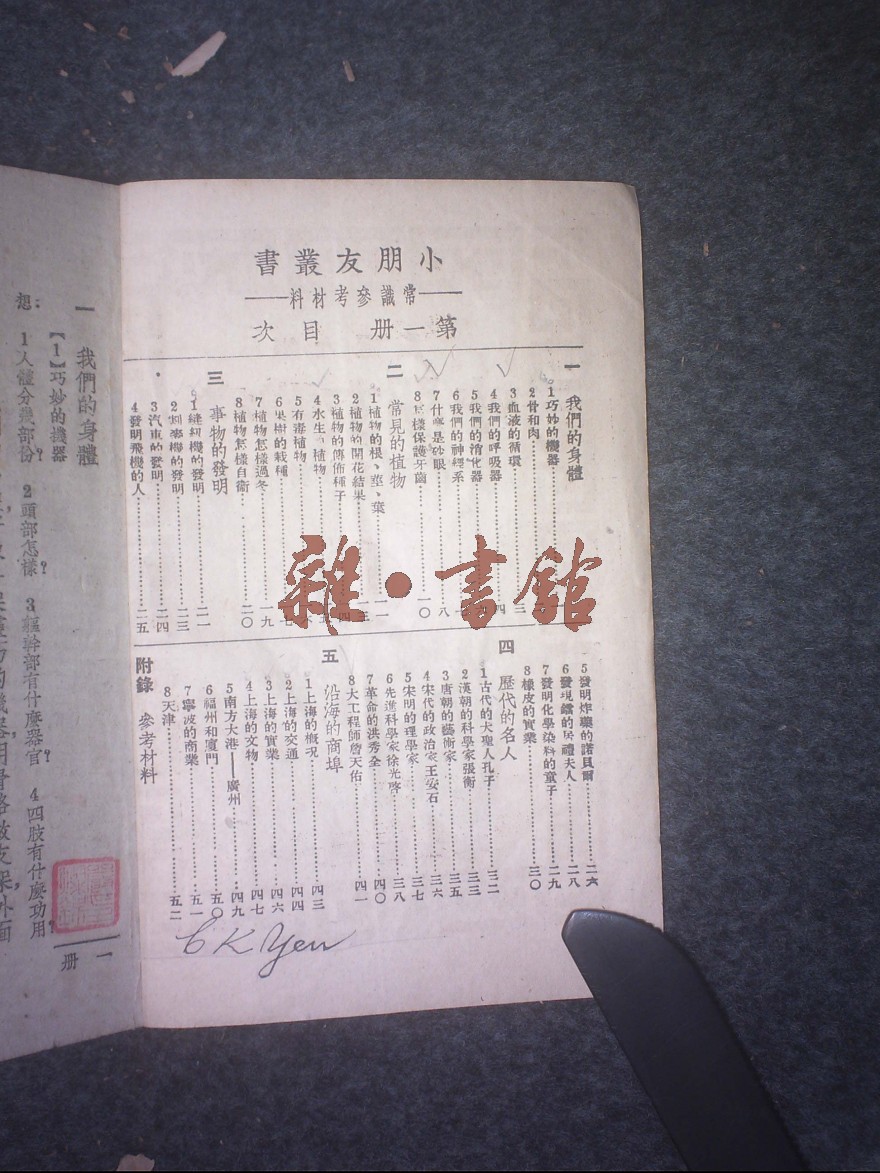 小朋友叢書
——常識參考材料——
第一册 目次
一 我們的身體
1巧妙的機器
2骨和肉
3血液的循環……三
4我們的呼吸器……四
5我們的消化器
6我們的神經系
7什麽是砂眼……八
8怎樣保護牙齒……一〇
二 常見的植物
1植物的根、莖、葉……一一
2植物的開花結果
3植物的傳佈種子
4水生的植物
5有毒植物
6果樹的栽種
7植物怎樣過冬……一九
8植物怎樣自衞……二〇
三 事物的發明
1縫紉機的發明……二一
2割麥機的發明……二三
3汽車的發明……二四
4發明飛機的人……二五
5發明炸藥的諾貝爾……二六
6發現鐳的居禮夫人……二八
7發明化學染料的童子……二九
8橡皮的實業……三〇
四 歷代的名人
1古代的大聖人孔子……三二
2漢朝的科學家張衡……三三
3唐朝的藝術家……三五
4宋代的政治家王安石……三六
5宋明的理學家……三七
6先進科學家徐光啓……三八
7革命的洪秀全……四〇
8大工程師詹天佑……四一
五 沿海的商埠
1上海的概況……四三
2上海的交通……四四
3上海的實業……四六
4上海的文物……四七
5南方大港——廣州……四九
6福州和廈門……五〇
7寧波的商業……五一
8天津……五二
附錄 參考材料
C K Yen
雜·書館
一 我們的身體
【1】巧妙的機器
想:1人體分幾部份? 2頭部怎樣? 3軀幹部有什麽器官? 4四肢有什麽功用?
一册